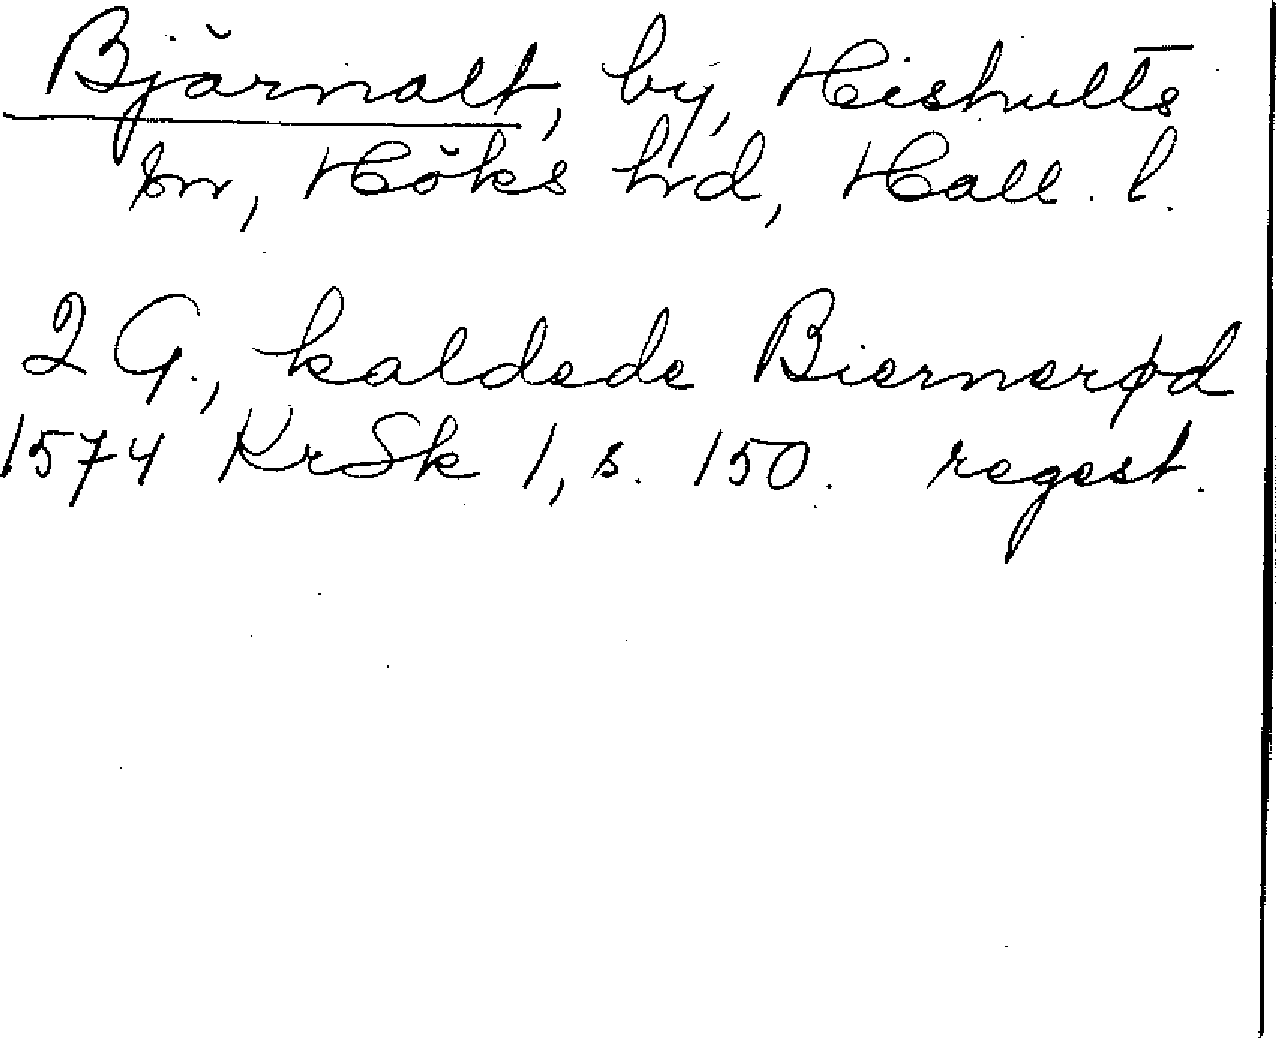 Bjärnalt, by, Hishults
sn, Höks hrd, Hall. l.
2 G., kaldede Biernerød
1574 KrSk 1, s. 150. regest.